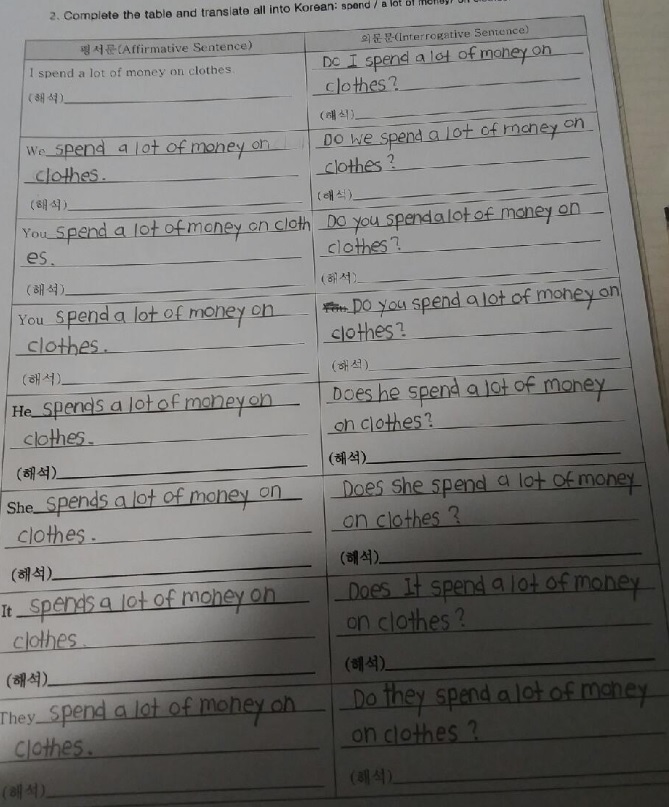 2. Complete the table and translate all into Korean: spend / a lot of money/ on
평서문(Affirmative Sentence)
의문문(Interrogative Sentence)
I spend a lot of money on clothes.
(해석)
Do I spend a lot of money on
clothes?
(해석)
We spend a lot of money on
clothes.
(해석)
Do we spend a lot of money on
clothes?
(해석)
You spend a lot of money on cloth
es.
(해석)
Do you spend a lot of money on
clothes?
(해석)
You spend a lot of money on
clothes.
(해석)
Do you spend a lot of money on
clothes?
(해석)
He spends a lot of money on
clothes.
(해석)
Does he spend a lot of money
on clothes?
(해석)
She spends a lot of money on
clothes.
(해석)
Does She spend a lot of money
on clothes?
(해석)
It spends a lot of money on
clothes.
(해석)
Does It spend a lot of money
on clothes?
(해석)
They spend a lot of money on
clothes.
(해석)
Do they spend a lot of money
on clothes?
(해석)